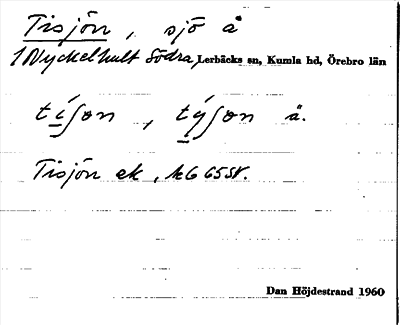 Tisjön, sjö å
1 Nyckelhult Södra, Lerbäcks sn, Kumla hd, Örebro län
tíſon, týſon å.
Tisjön ek, kG 65SV.
Dan Höjdestrand 1960